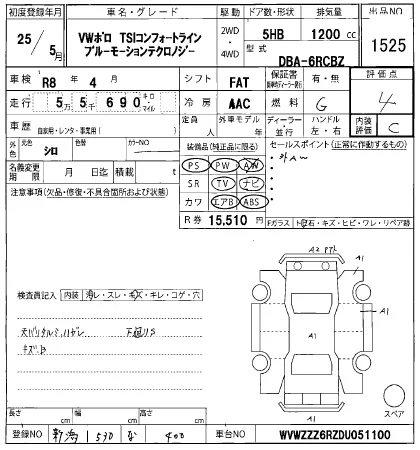 初度登録年月 車名・グレード 駆動 ドア数・形状 排気量 出品NO
25/5月 VWポロ TSIコンフォートライン 2WD・4WD 5HB 1200cc 1525
ブルーモーションテクノロジー 型式 DBA-6RCBZ
車検 R8年4月 シフト FAT 保証書 評価点
走行 5万5千690キロ・マイル 冷房 AAC 燃料 G 4
車歴 自家用・レンタ・事業用( ) 外車モデル ディーラー・並行 ハンドル 左・右 内装評価 C
外色 元色 シロ 色替 カラーNO 装備品(純正品に限る) セールスポイント(正常に作動するもの)
名義変更期限 月 日迄 積載 t PS PW AW ・外AW
注意事項(欠品・修復・不具合箇所および状態) SR TV ナビ
カワ エアB ABS
R券 15,510円 Fガラス 飛石・キズ・ヒビ・ワレ・リペア跡
A2 A1
検査員記入 内装 汚レ・スレ・キズ・キレ・コゲ・穴
A1
A1
下廻りS
キズB
A1
スペア
長さ cm 幅 cm 高さ cm
登録NO 新潟 530 な 400 車台NO WVWZZZ6RZDU051100